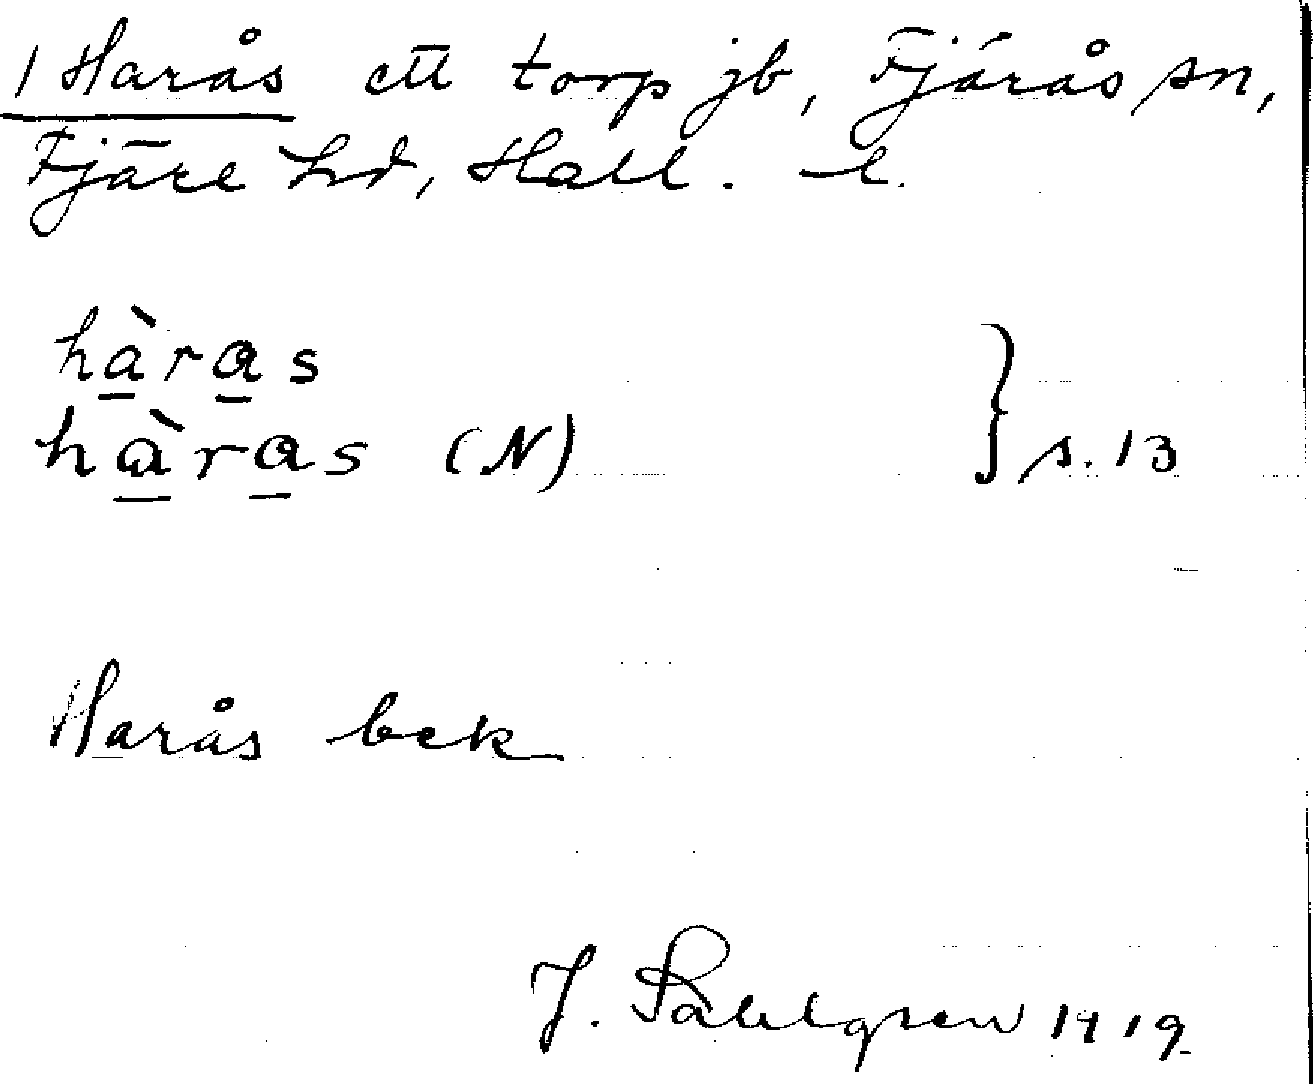 1 Harås ett torp jb, Fjärås sn,
Fjäre hd, Hall. l.
hàras
hàras (N) } s. 13
Harås bek
J. Sahlgren 1919